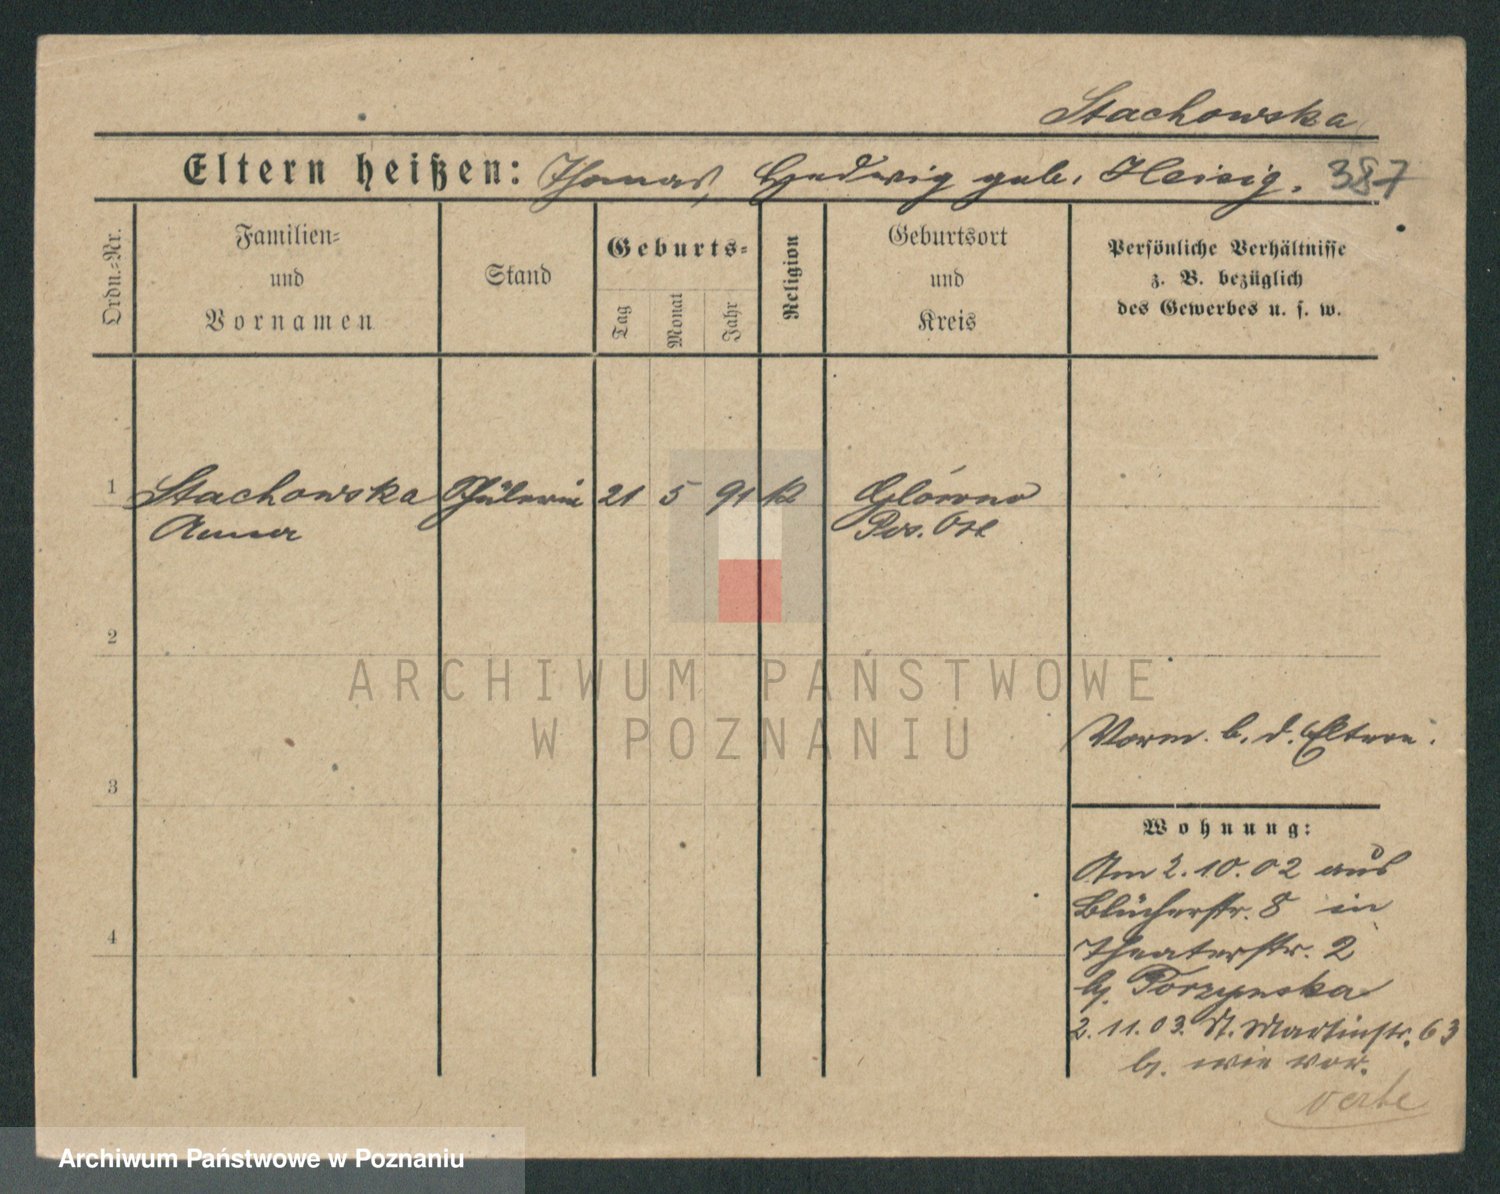 Stachowska
Eltern heißen: Thomas, Hedwig geb. Heisig. 387
Ordn.=Nr.
Familien=
und
Vornamen
Stand
Geburts=
Tag
Monat
Jahr
Religion
Geburtsort
und
Kreis
Persönliche Verhältnisse
z. B. bezüglich
des Gewerbes u. s. w.
1 Stachowska Schülerin 21 5 91 k Glówno
Anna Pos. Ost
2
ARCHIWUM PAŃSTWOWE
W POZNANIU
Vorm. b. d. Eltern.
3
Wohnung:
Am 2.10.02 aus
Blücherstr. 8 in
4
Theaterstr. 2
b. Torzynska
2.11.03. St. Martinstr. 63
b. wie vor.
Archiwum Państwowe w Poznaniu